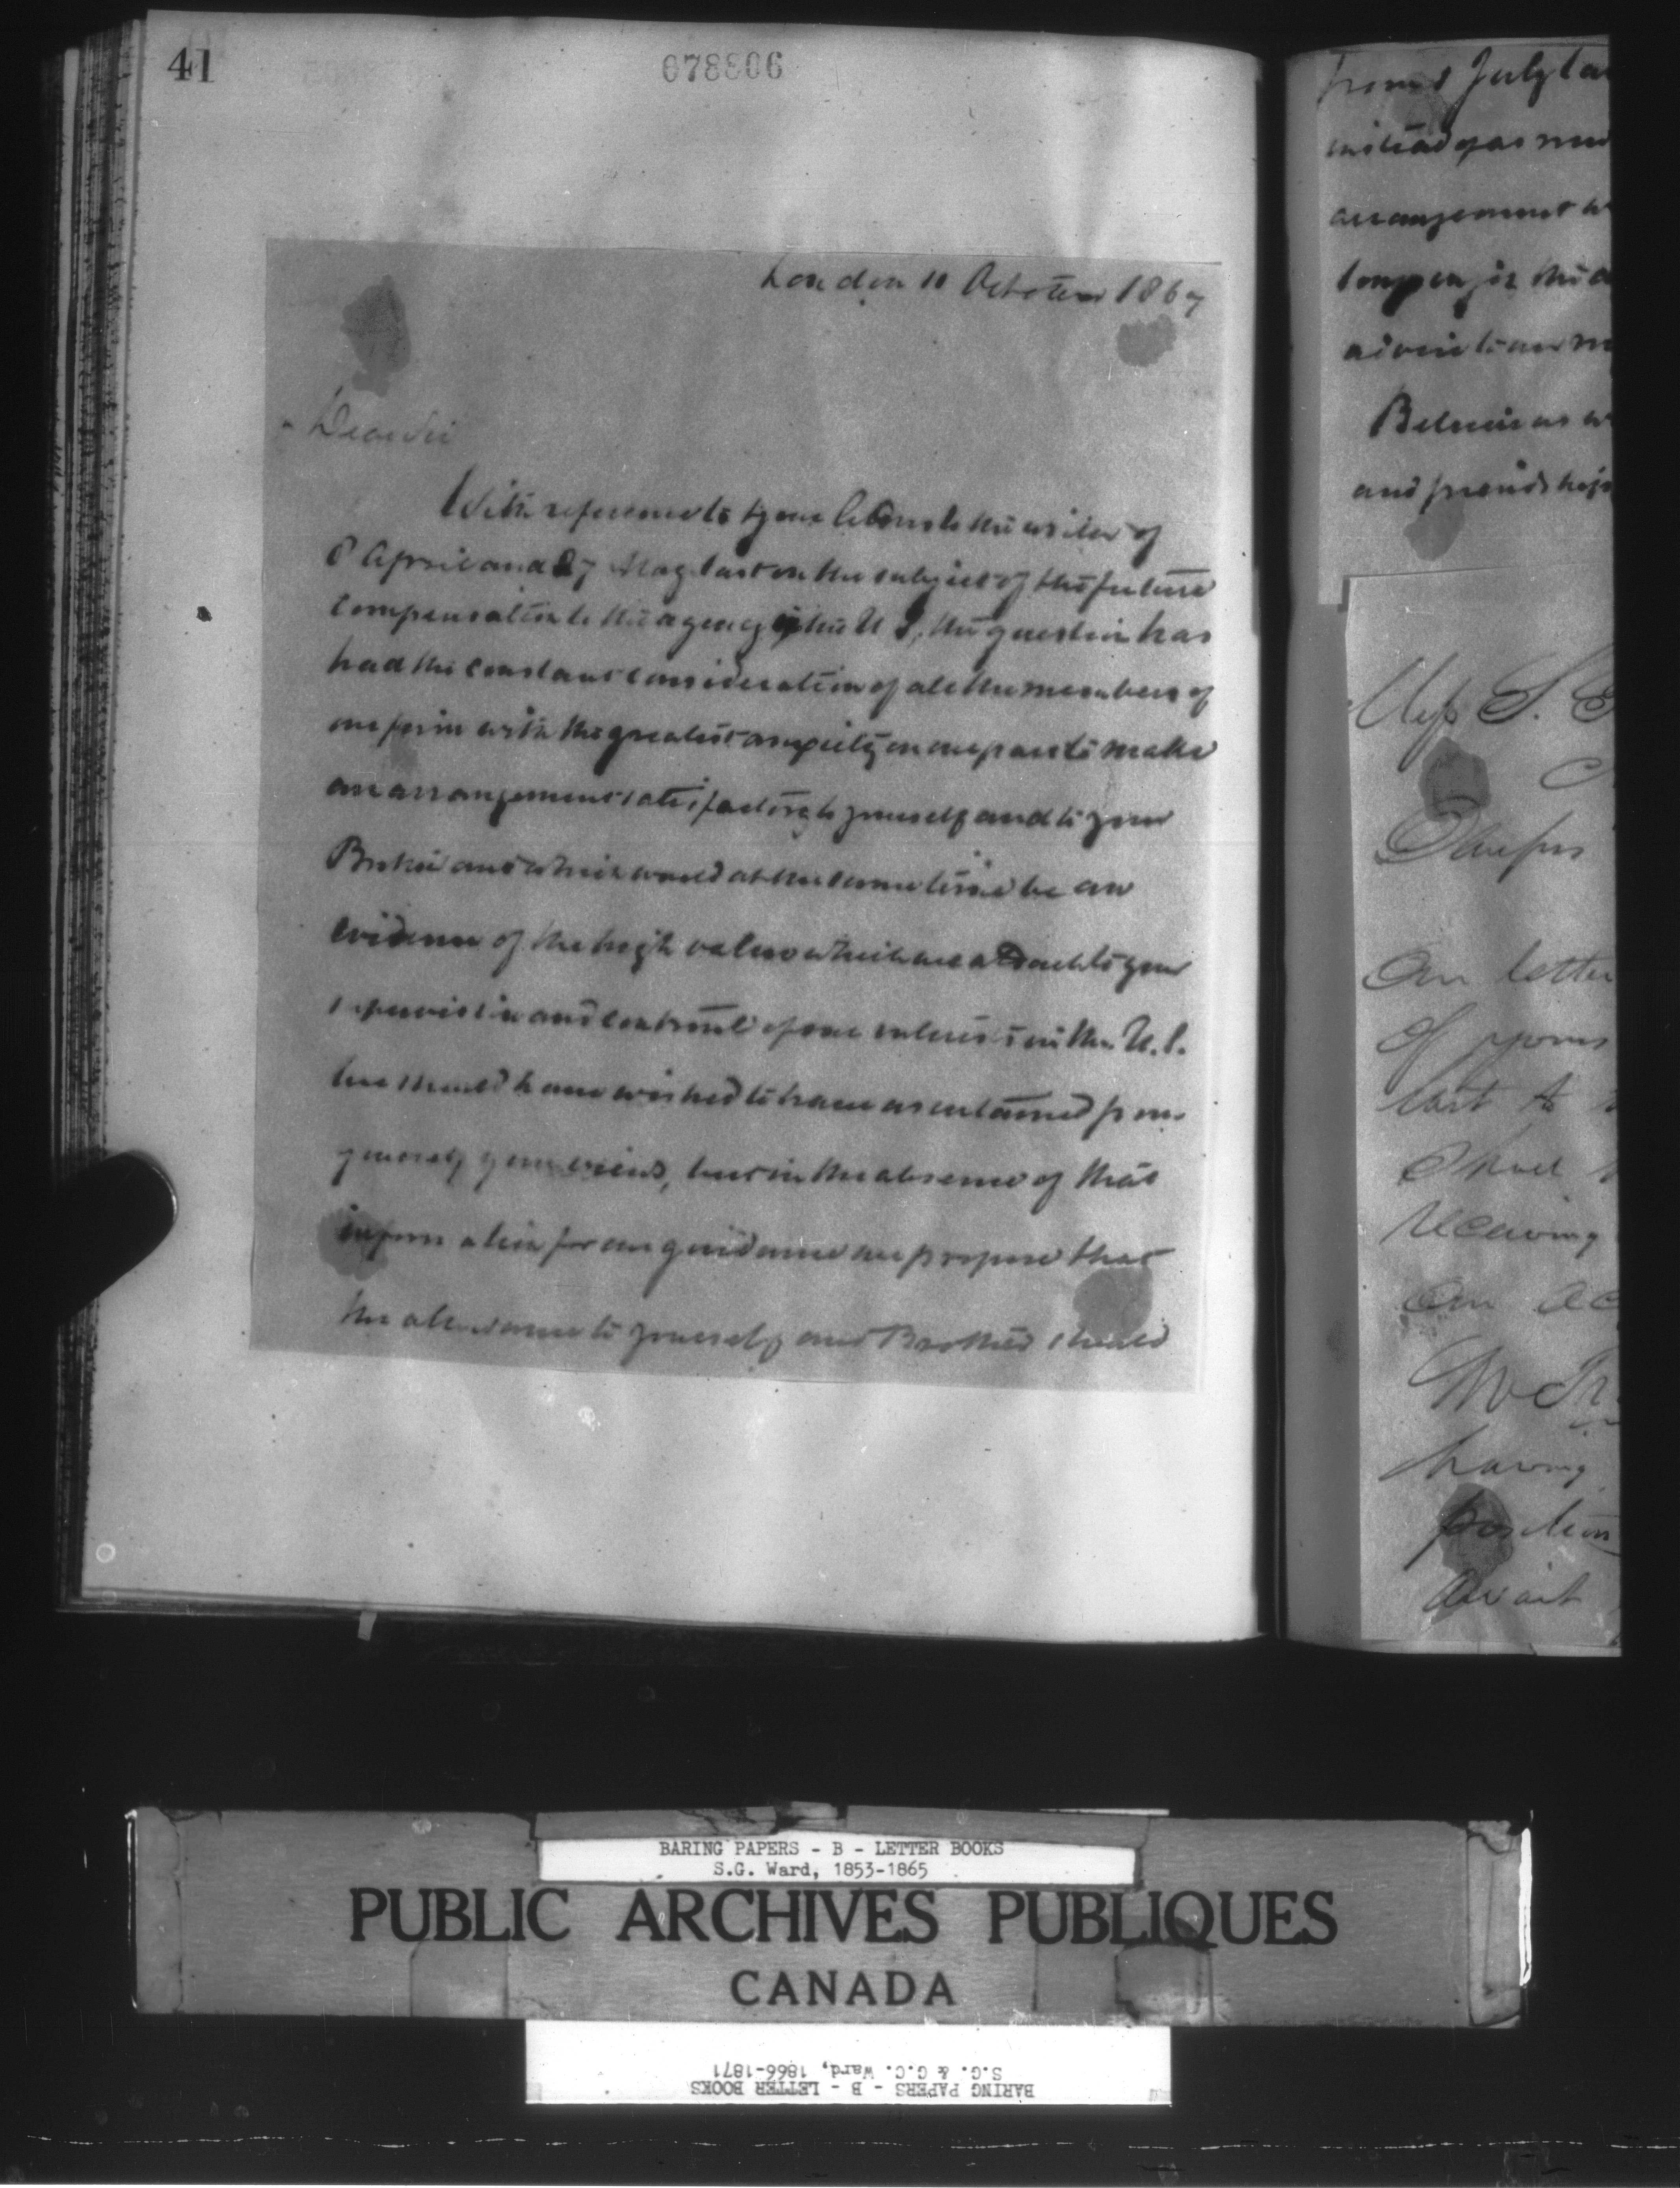 41
078806
London 10 October 1867
Dear Sir
With reference to your letters to the writer of
8 April and 27 May last on the subject of the future
compensation to the agency in the U S, the question has
had the constant consideration of all the members of
our firm with the greatest anxiety on our part to make
an arrangement satisfactory to yourself and to your
Brother and which would at the same time be an
evidence of the high value which we attach to your
supervision and control of our interests in the U.S.
We should have wished to have ascertained from
yourself your views, but in the absence of that
information for our guidance we propose that
the allowance to yourself and Brother should
from 1 July la
instead of as
arrangement w
longer for the
advice to our
Believe us w
and friendship
Mess S. G
Our letter
of yours
last to
Shall
receiving
our ac
having
position
await
BARING PAPERS - B - LETTER BOOKS
S.G. Ward, 1853-1865
PUBLIC ARCHIVES PUBLIQUES
CANADA
BARING PAPERS - B - LETTER BOOKS
S.G. & G.C. Ward, 1866-1871